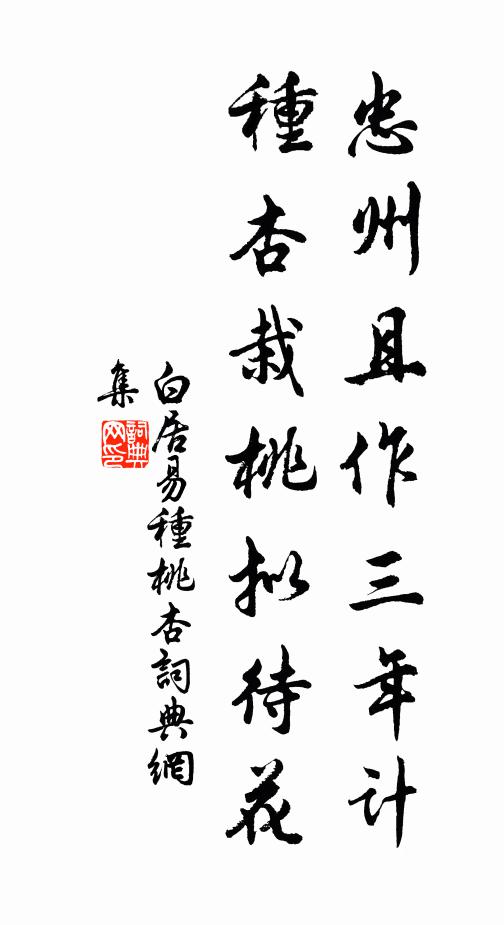 忠州且作三年计
種杏栽桃拟待花
白居易種桃杏詞典網
集
詞典
网印